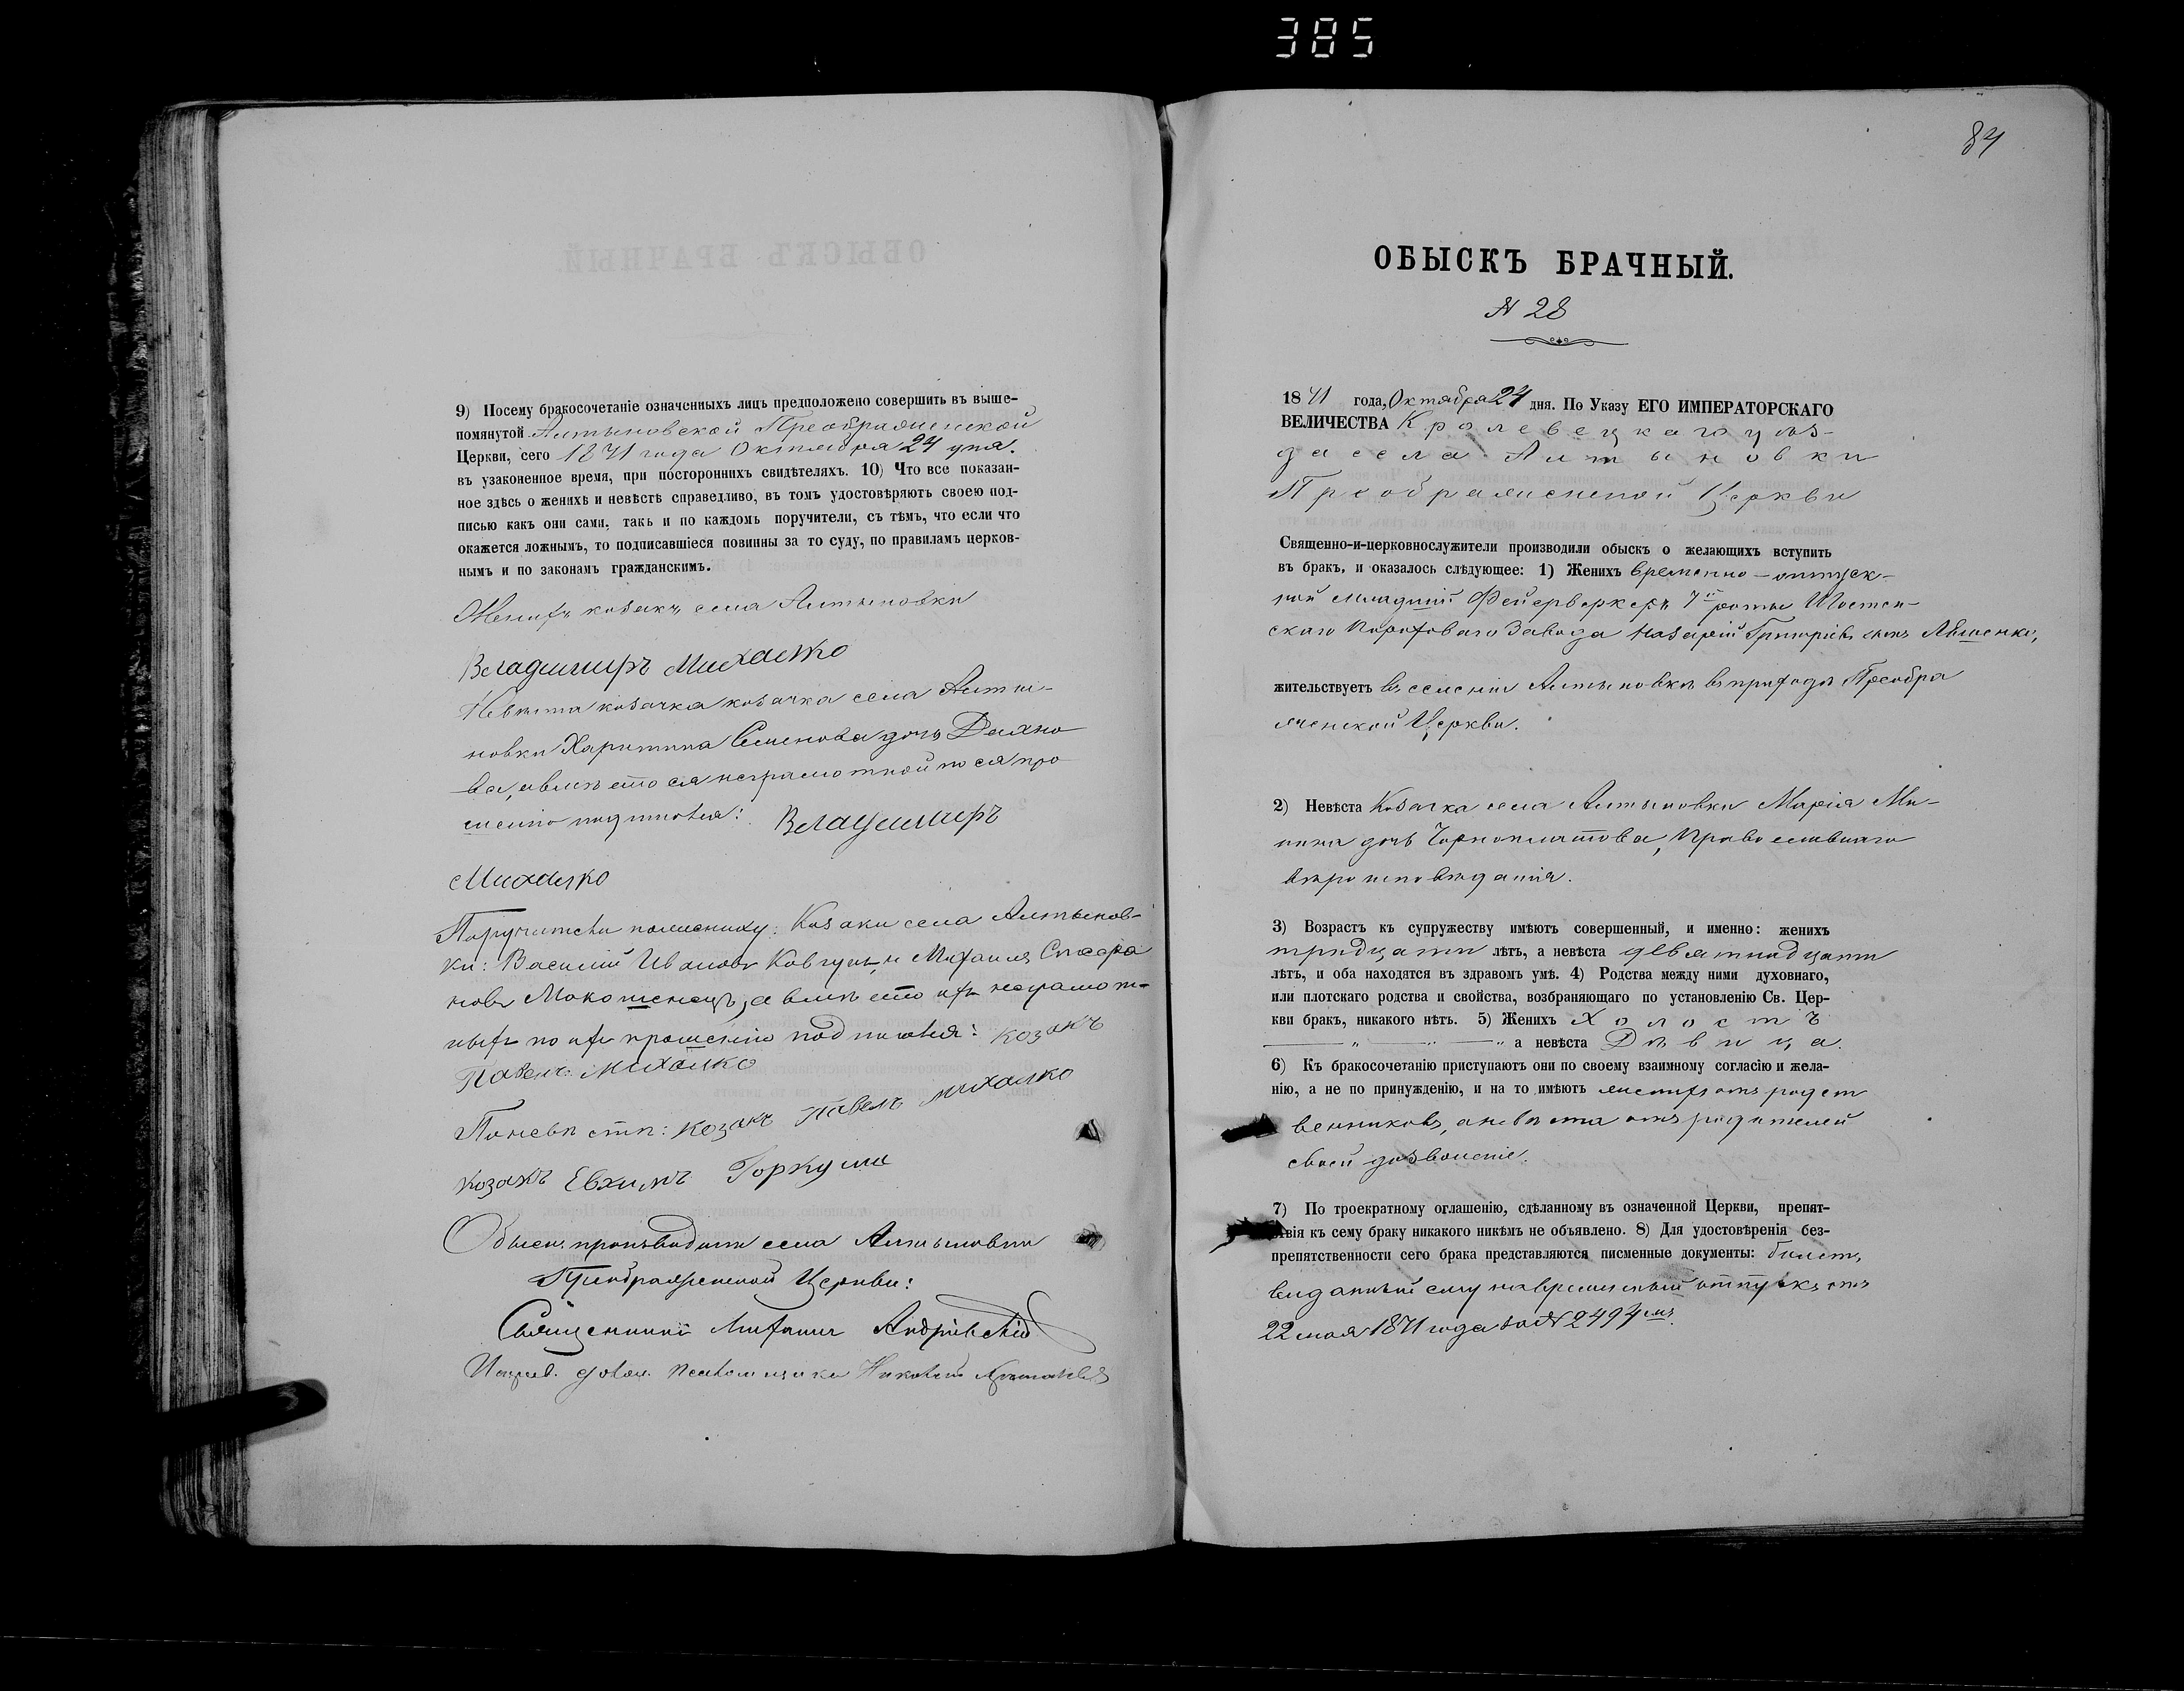 385
9) Посему бракосочетаніе означенныхъ лицъ предположено совершить въ выше-
помянутой Алтыновской Преображенской
Церкви, сего 1871 года Октября 24 дня.
въ узаконенное время, при постороннихъ свидѣтеляхъ. 10) Что все показан-
ное здѣсь о женихѣ и невѣстѣ справедливо, въ томъ удостовѣряютъ своею под-
писью какъ они сами, такъ и по каждомъ поручители, съ тѣмъ, что если что
окажется ложнымъ, то подписавшіеся повинны за то суду, по правиламъ церков-
нымъ и по законамъ гражданскимъ.
Женихъ козакъ села Алтыновки
Владимиръ Михалко
Невѣста козачка козачка села Алты-
новки Харитина Семенова дочь
а вмѣсто ея неграмотной по ея про
шенію подписался: Владимиръ
Михалко
Поручители по женихѣ: Козаки села Алтынов-
ки: Василій Ивановъ Ковгунъ, и Михаилъ
новъ Мокошенецъ, а вмѣсто ихъ неграмот-
ныхъ по ихъ прошенію подписался: козакъ
Павелъ Михалко
По невѣстѣ: козакъ Павелъ Михалко
козакъ Евхимъ Горкуша
Обыскъ производили села Алтыновки
Преображенской Церкви:
Священникъ Андріевскій
84
ОБЫСКЪ БРАЧНЫЙ.
№ 28
1871 года, Октября 24 дня. По Указу ЕГО ИМПЕРАТОРСКАГО
ВЕЛИЧЕСТВА Кролевецкаго уѣз-
да села Алтыновки
Преображенской Церкви
Священно-и-церковнослужители производили обыскъ о желающихъ вступить
въ бракъ, и оказалось слѣдующее: 1) Женихъ временно-отпуск-
ной младшій Фейерверкеръ 7й роты Шостен-
скаго Пороховаго Завода Назарій Григоріевъ сынъ Ляшенко,
жительствуетъ въ селеніи Алтыновкѣ въ приходѣ Преобра
женской Церкви.
2) Невѣста Козачка села Алтыновки Марія Ми-
нина дочь Чорноплатова, Православнаго
вѣроисповѣданія.
3) Возрастъ къ супружеству имѣютъ совершенный, и именно: женихъ
тридцати лѣтъ, а невѣста девятнадцати
лѣтъ, и оба находятся въ здравомъ умѣ. 4) Родства между ними духовнаго,
или плотскаго родства и свойства, возбраняющаго по установленію Св. Цер-
кви бракъ, никакого нѣтъ. 5) Женихъ Холостъ
а невѣста Дѣвица.
6) Къ бракосочетанію приступаютъ они по своему взаимному согласію и жела-
нію, а не по принужденію, и на то имѣютъ женихъ отъ родст
венниковъ, а невѣста отъ родителей
своей дозволеніе.
7) По троекратному оглашенію, сдѣланному въ означенной Церкви, препят-
ствія къ сему браку никакого никѣмъ не объявлено. 8) Для удостовѣренія без-
препятственности сего брака представляются писменные документы: билетъ,
виданный ему на временный отпускъ отъ
22 мая 1871 года за № 2494мъ.